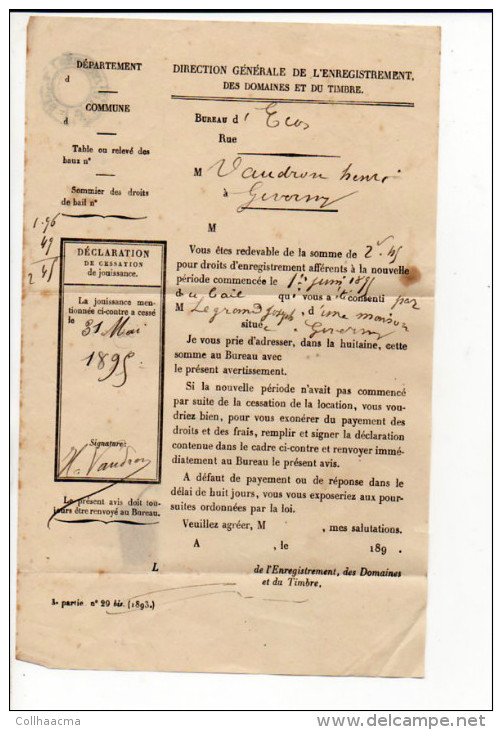 DÉPARTEMENT
d
COMMUNE
d
Table ou relevé des
baux n°
Sommier des droits
de bail n°
1.96
49
2 45
DÉCLARATION
DE CESSATION
de jouissance.
La jouissance men-
tionnée ci-contre a cessé
le 31 Mai
1895
Signature:
H. Vaudron
Le présent avis doit tou-
jours être renvoyé au Bureau.
DIRECTION GÉNÉRALE DE L'ENREGISTREMENT,
DES DOMAINES ET DU TIMBRE.
BUREAU d'Ecos
Rue
M Vaudron henri
à Giverny
M
Vous êtes redevable de la somme de 2f 45
pour droits d'enregistrement afférents à la nouvelle
période commencée le 1er juin 1895
du bail qu' vous a consenti par
M Legrand Joseph, d'une maison
située Giverny
Je vous prie d'adresser, dans la huitaine, cette
somme au Bureau avec
le présent avertissement.
Si la nouvelle période n'avait pas commencé
par suite de la cessation de la location, vous vou-
driez bien, pour vous exonérer du payement des
droits et des frais, remplir et signer la déclaration
contenue dans le cadre ci-contre et renvoyer immé-
diatement au Bureau le présent avis.
A défaut de payement ou de réponse dans le
délai de huit jours, vous vous exposeriez aux pour-
suites ordonnées par la loi.
Veuillez agréer, M , mes salutations.
A , le 189 .
L
de l'Enregistrement, des Domaines
et du Timbre.
3e partie. n° 29 bis. (1893.)
Collhaacma
www.delcampe.net